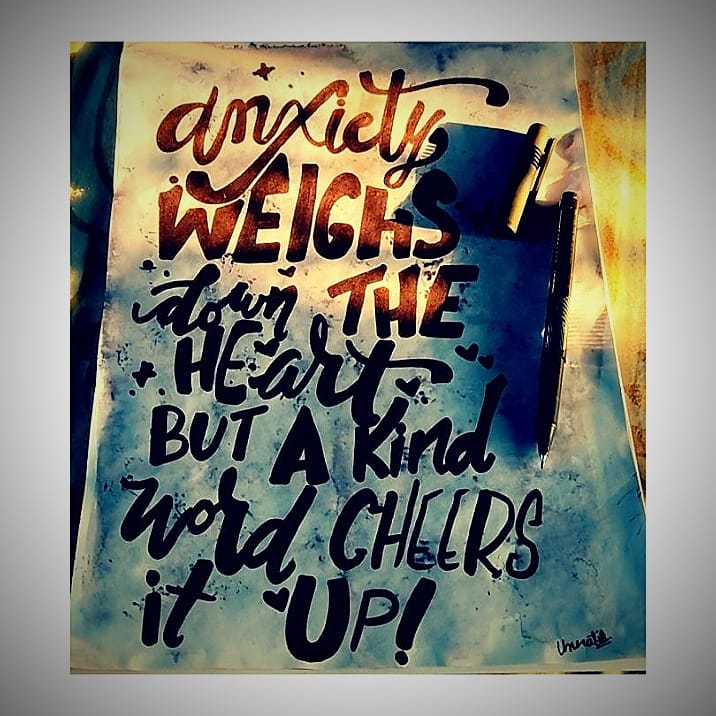 anxiety
WEIGHS
down THE
HEart
BUT A Kind
word CHEERS
it UP!